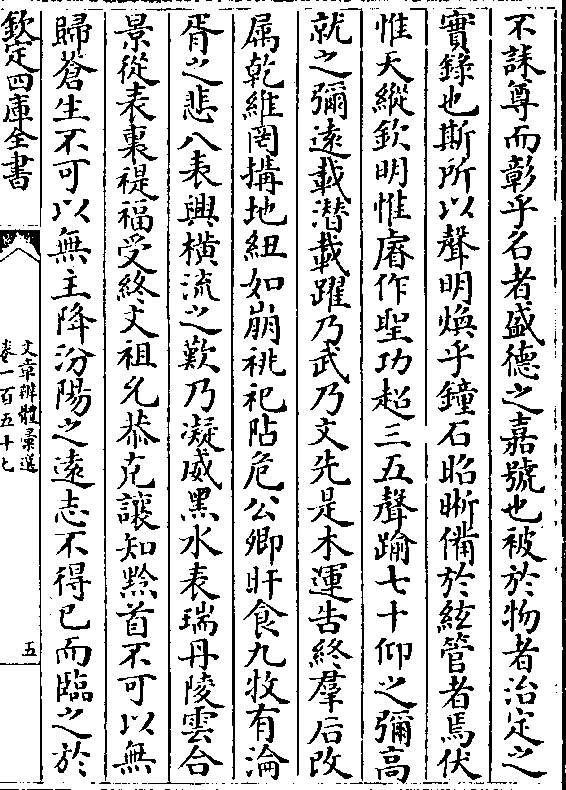 不誄尊而彰乎名者盛德之嘉號也被於物者治定之
實錄也斯所以聲明煥乎鐘石昭晰備於絃管者焉伏
惟天縱欽明惟睿作聖功超三五聲踰七十仰之彌高
就之彌遠載潛載躍乃武乃文先是木運告終羣后改
屬乾維罔搆地紐如崩祧祀阽危公卿旰食九牧有淪
胥之悲八表興橫流之歎乃凝威黑水表瑞丹陵雲合
景從表裏禔福受終文祖允恭克讓知黔首不可以無
歸蒼生不可以無主降汾陽之遠志不得已而臨之於
欽定四庫全書
文章辨體彙選
卷一百五十七
五